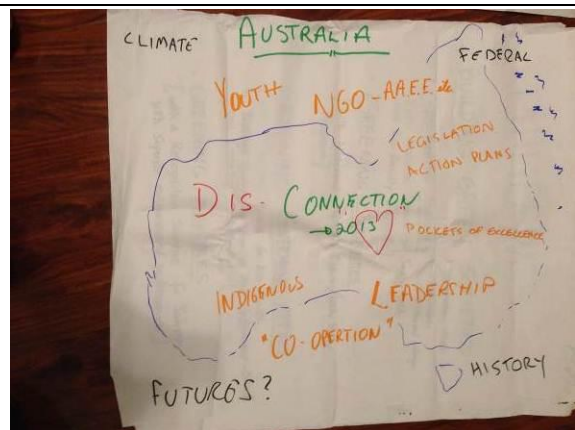 CLIMATE
AUSTRALIA
FEDERAL
YOUTH
NGO-A.A.E.E. etc
LEGISLATION
ACTION PLANS
DIS-CONNECTION
→2013
POCKETS OF EXCELLENCE
INDIGENOUS
LEADERSHIP
"CO-OPERTION"
HISTORY
FUTURES?